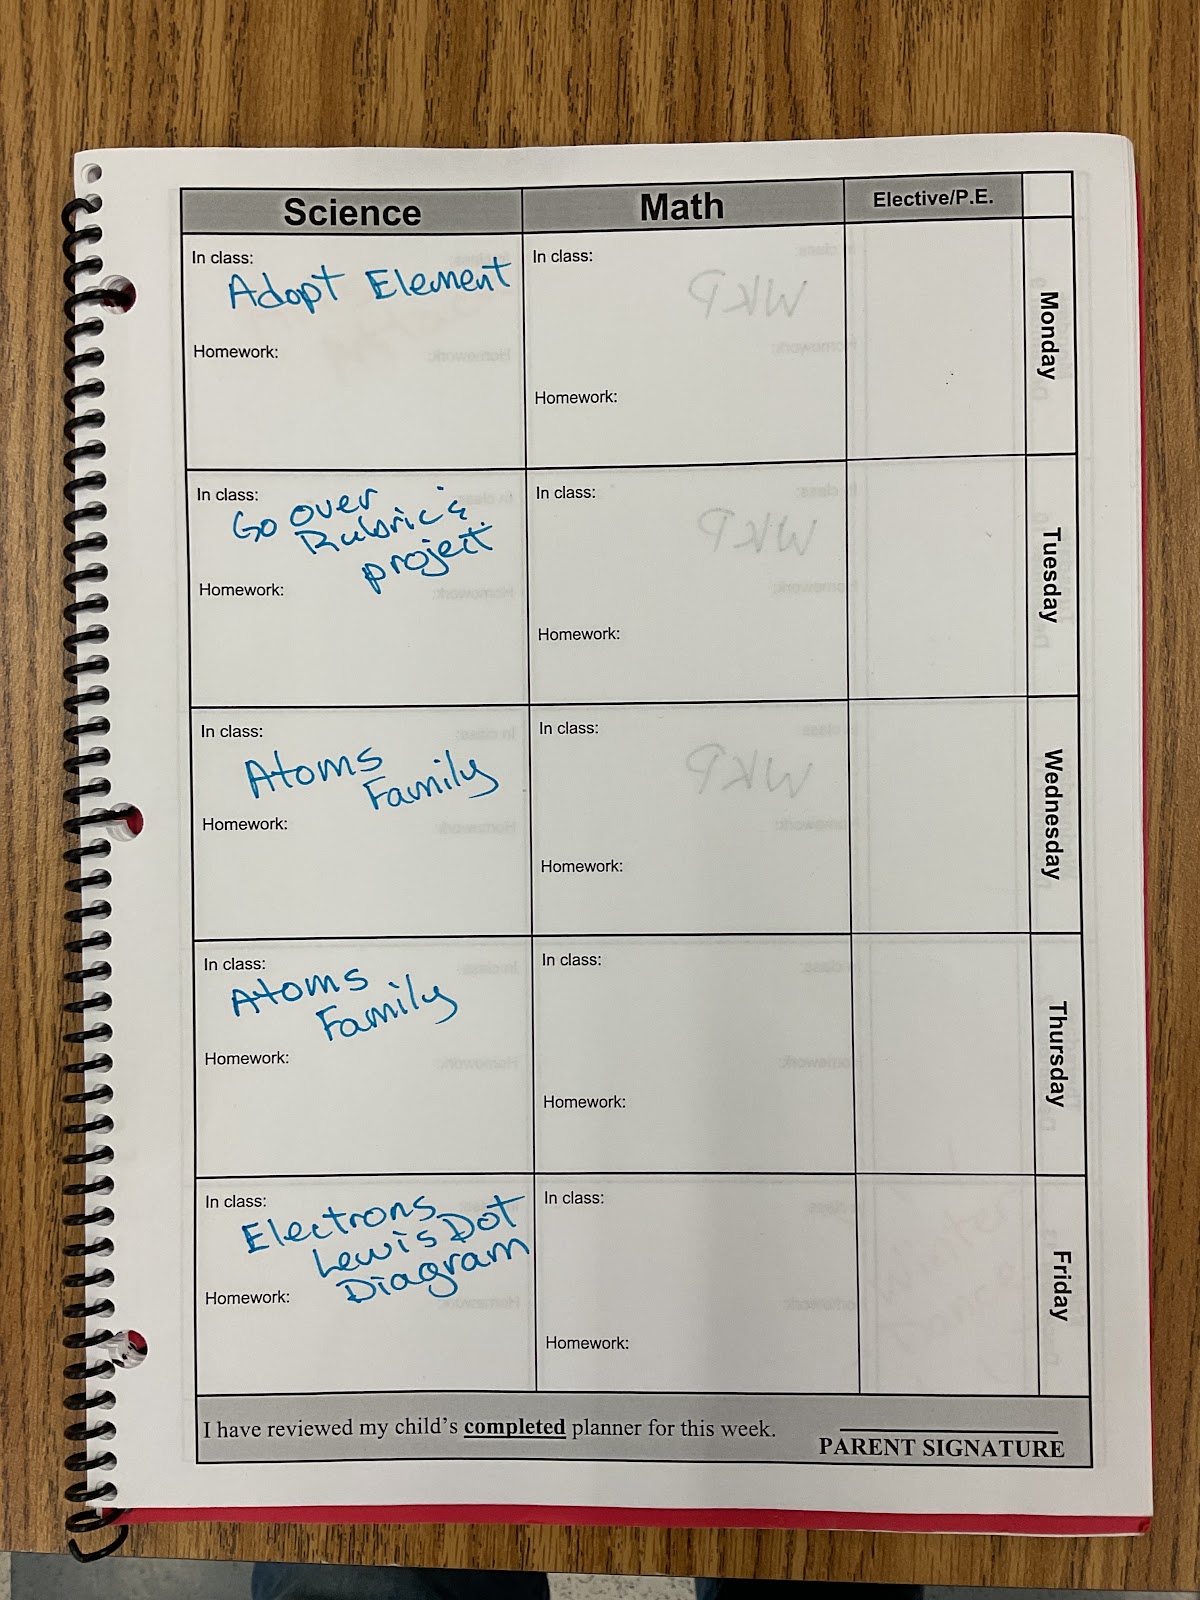 Science Math Elective/P.E.
In class:
Adopt Element
Homework:
In class:
Homework:
Monday
In class:
Go over
Rubric &
project
Homework:
In class:
Homework:
Tuesday
In class:
Atoms
Family
Homework:
In class:
Homework:
Wednesday
In class:
Atoms
Family
Homework:
In class:
Homework:
Thursday
In class:
Electrons
Lewis Dot
Diagram
Homework:
In class:
Homework:
Friday
I have reviewed my child's completed planner for this week.
PARENT SIGNATURE